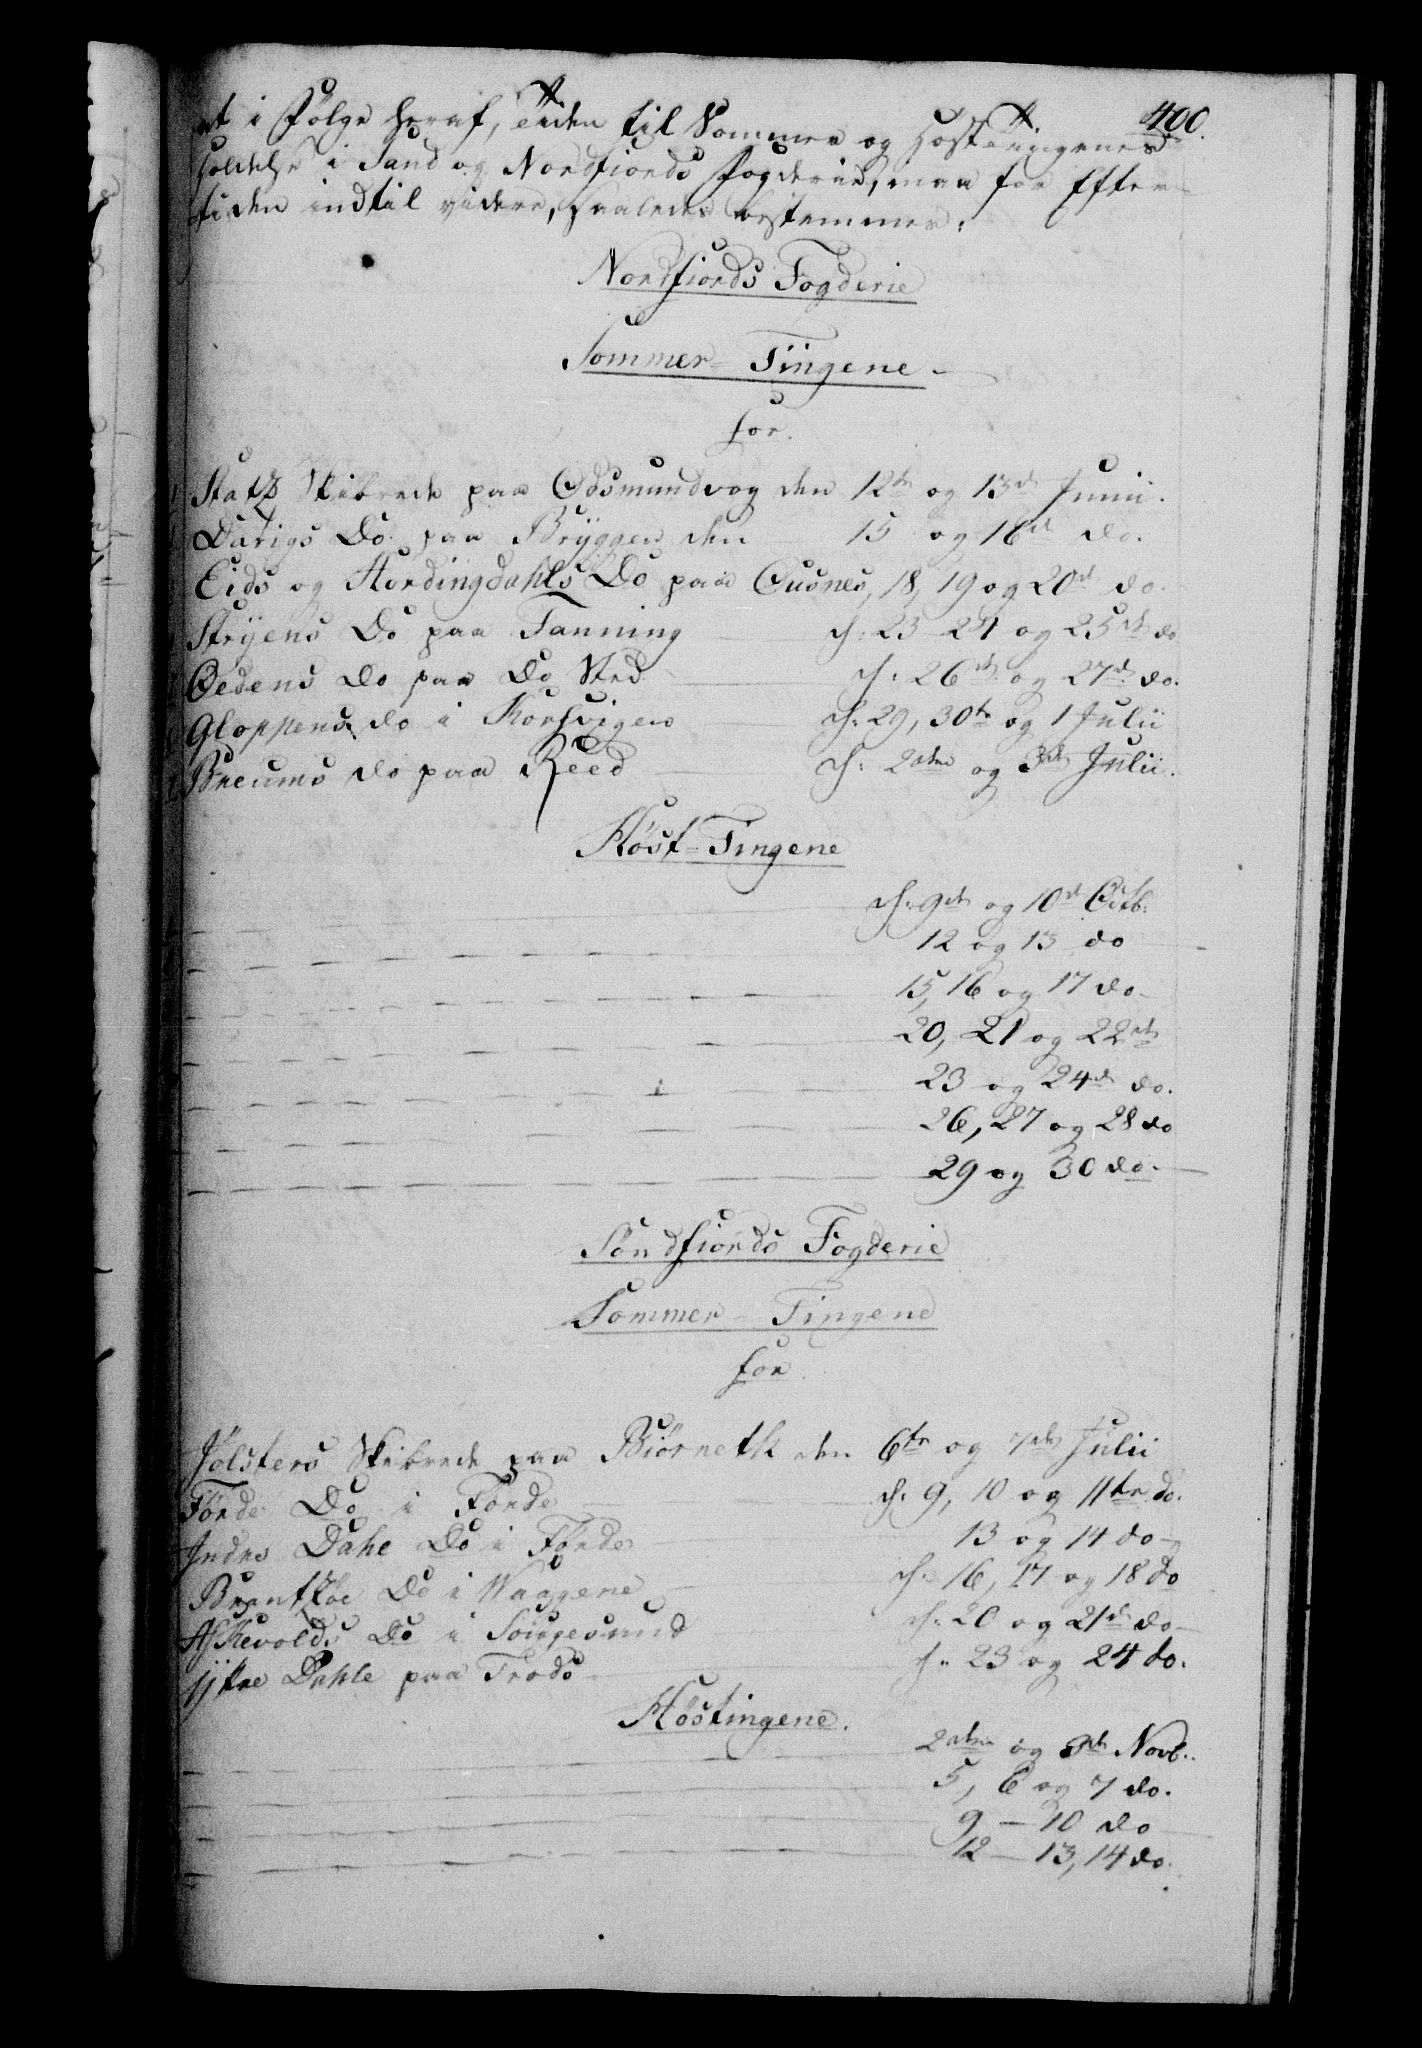 400.
at i Følge heraf, Tiden til Sommer og Høsttingenes
holdelse i Sund og Nordfiords Fogderie, maa for Efter-
tiden indtil videre, saaledes bestemmes:
Nordfiords Fogderie
Sommer-Tingene
for
Statz Skibrede paa Odsmundvog den 12te og 13de Junii.
Davigs Do paa Bryggen den 15 og 16de do.
Eids og Hordingdahls Do paa Ousnes, 18, 19 og 20de do.
Stryens Do paa Tanning d: 23 24 og 25de do
Oedens do paa Do Sted d: 26de og 27de do.
Gloppens do i Korsvigen d: 29, 30te og 1 Julii
Breums do paa Reed d: 2den og 3de Julii.
Høst-Tingene
d: 9de og 10de Octb:
12 og 13 do
15, 16 og 17 do
20, 21 og 22de
23 og 24de do.
26, 27 og 28 do
29 og 30 do.
Søndfiords Fogderie
Sommer-Tingene
for
Jølsters Skibrede paa Biørnetk den 6te og 7de Julii
Førde Do i Førde d: 9, 10 og 11te do.
Indre Dahe Do i Førde 13 og 14 do
Do i Waagene d: 16, 17 og 18 do
Askevolds Do i d: 20 og 21de do
Yttre Dahle paa d: 23 og 24 do.
Høstingene.
2den og 3de Novb:
5, 6 og 7 do.
9 - 10 do
12 - 13, 14 do.